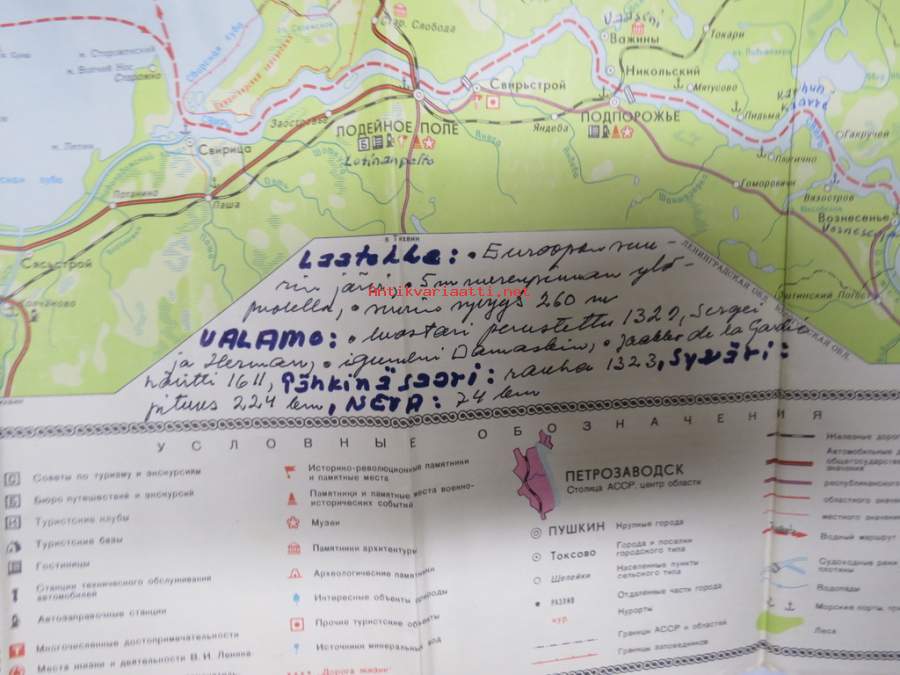 Стар. Слобода
Важины
Токари
Никольский
Мятусово
Свирьстрой
ПОДПОРОЖЬЕ
Пидьма
Гакручей
Яндеба
Плотично
Гоморовичи
Вязостров
Вознесенье
м. Сторожевский
м. Волчий Нос
Сторожно
Заостровье
ЛОДЕЙНОЕ ПОЛЕ
Lotinanpelto
Свирица
Потанино
Паша
Сясьстрой
Колчаново
ЛЕНИНГРАДСКАЯ ОБЛ.
Laatokka: • Euroopan suu-
rin järvi, • 5 m merenpinnan ylä-
puolella, • suurin syvyys 260 m
Antikvariaatti.net
VALAMO: • luostari perustettu 1329, Sergei
ja Herman, • igumeni Damaskin, • Jaakko de la Gardie
hävitti 1611, Pähkinäsaari: rauha 1323, Syväri:
pituus 224 km, NEVA: 74 km
УСЛОВНЫЕ ОБОЗНАЧЕНИЯ
Советы по туризму и экскурсиям
Бюро путешествий и экскурсий
Туристские клубы
Туристские базы
Гостиницы
Станции технического обслуживания
автомобилей
Автозаправочные станции
Многочисленные достопримечательности
Места жизни и деятельности В. И. Ленина
Историко-революционные памятники
и памятные места
Памятники и памятные места военно-
исторических событий
Музеи
Памятники архитектуры
Археологические памятники
Интересные объекты природы
Прочие туристские объекты
Источники минеральных вод
"Дорога жизни"
ПЕТРОЗАВОДСК
Столица АССР, центр области
ПУШКИН Крупные города
Токсово Города и поселки
городского типа
Шепейки Населенные пункты
сельского типа
РАЗЛИВ Отдаленные части города
кур. Курорты
Границы АССР и областей
Границы заповедников
Железные дороги
Автомобильные дороги
общегосударственного
значения
республиканского
областного значения
местного значения
Водный маршрут
Судоходные реки
плотины
Водопады
Морские порты, пристани
Леса